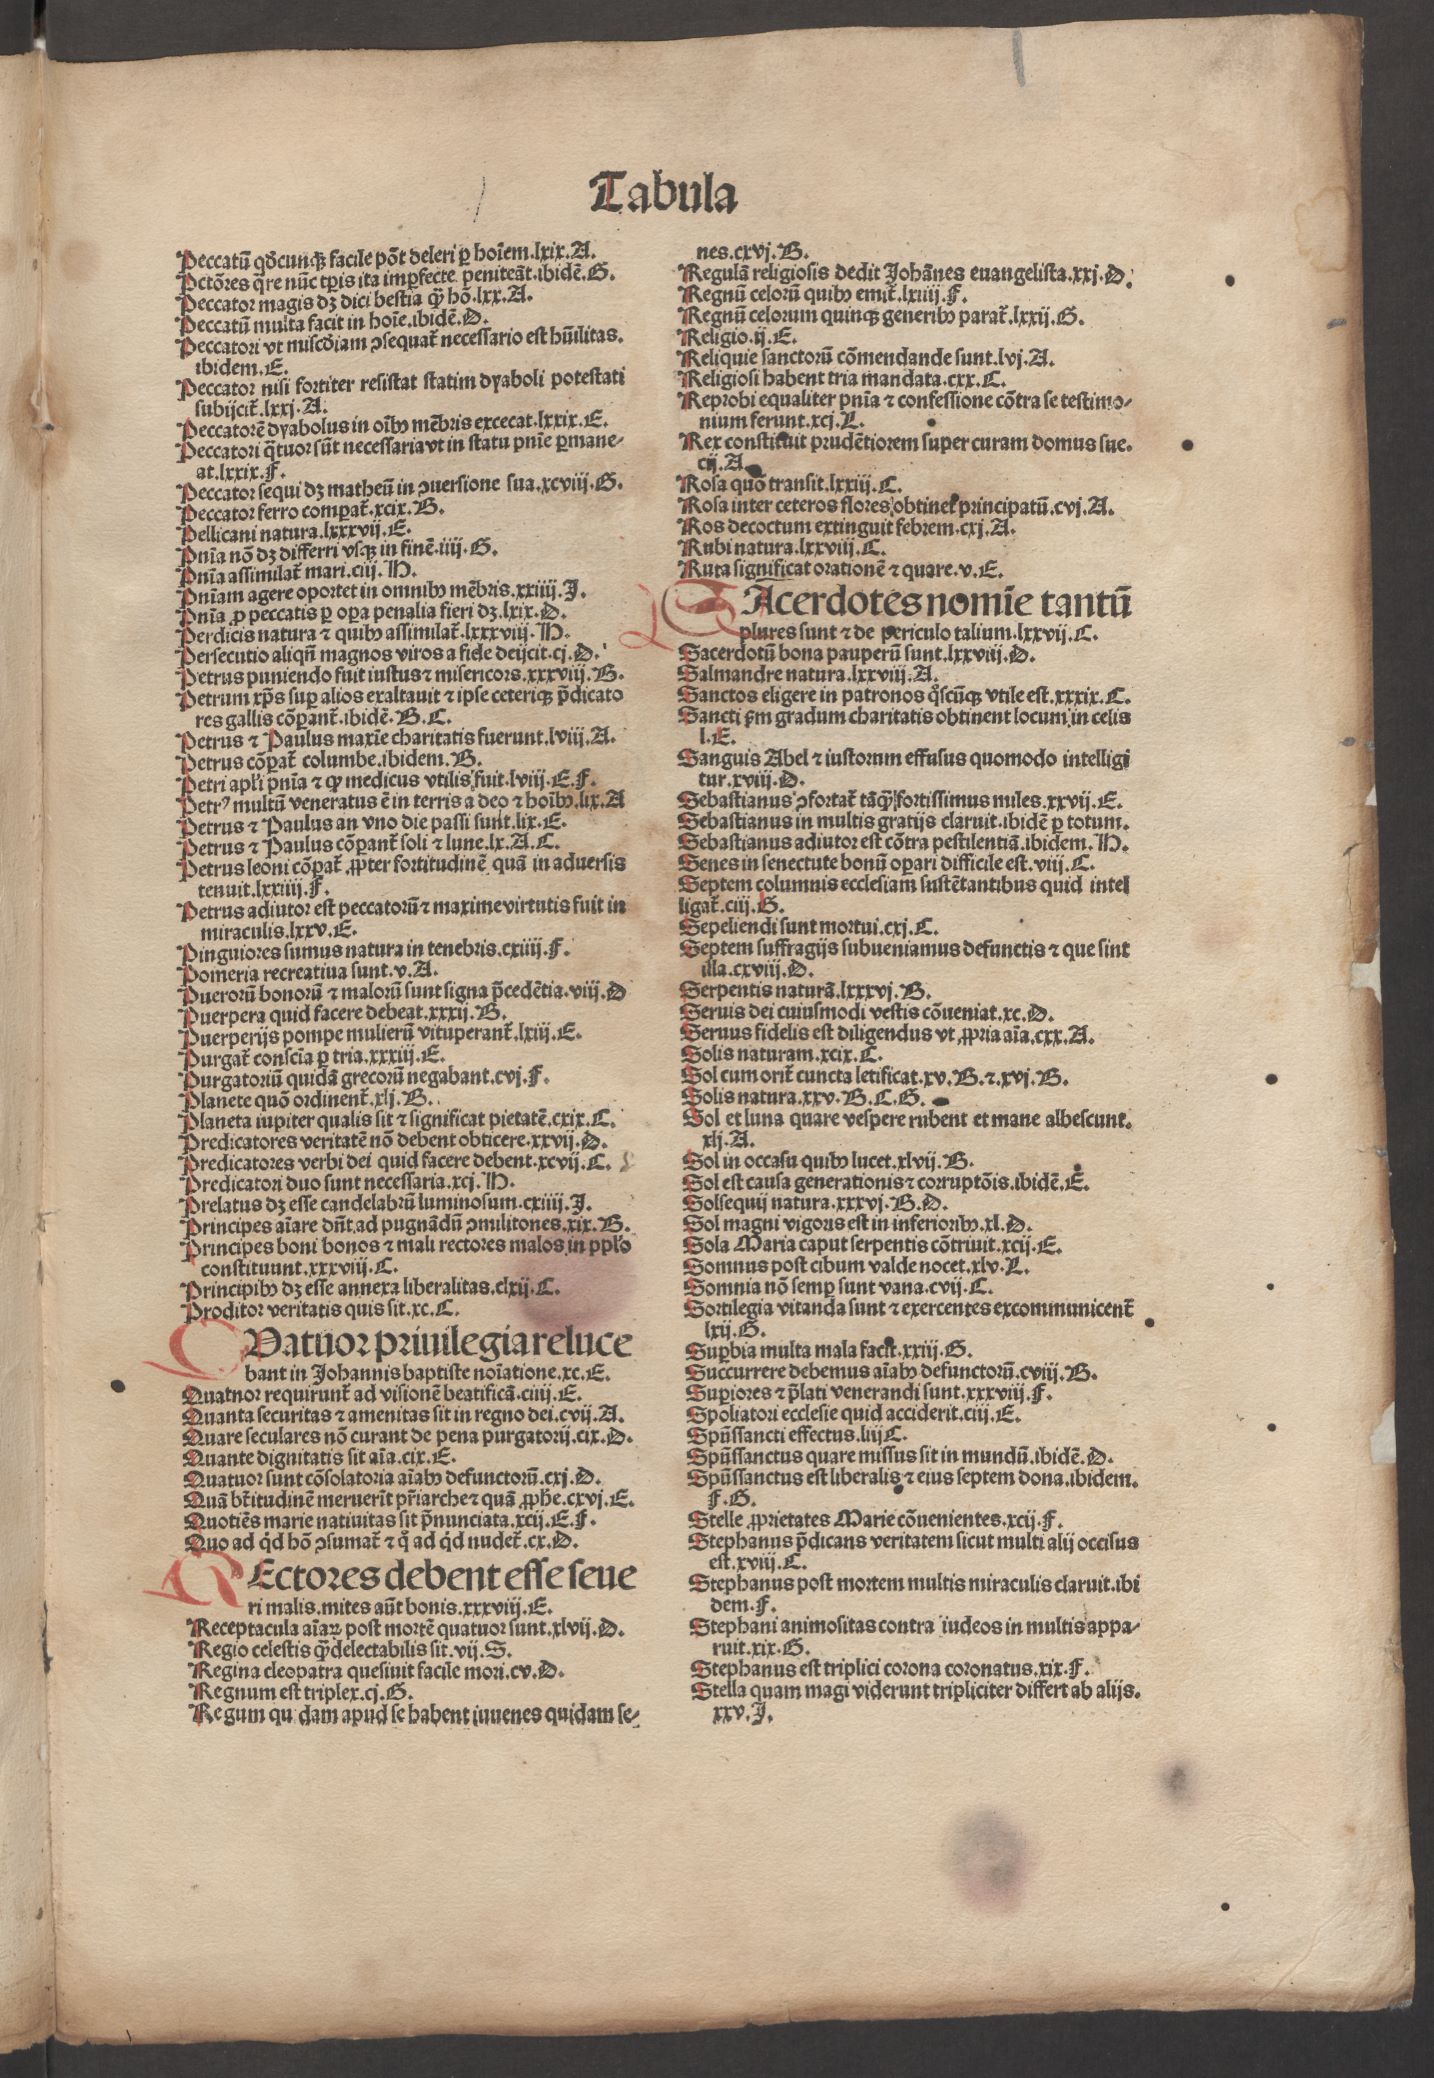 Tabula
Peccatū qd̓cunqꝫ facile pōt deleri ꝑ hoīem.lxix.A.
Pctōres q̄re nūc tꝑis ita imꝑfecte peniteāt.ibidē.G.
Peccator magis dꝫ dici bestia q̄ꝫ hō.lxx.A.
Peccatū multa facit in hoīe.ibidē.D.
Peccatori vt miscd̓iam ↄsequat᷑ necessario est hūilitas.
ibidem.E.
Peccator nisi fortiter resistat statim dyaboli potestati
subijcit᷑.lxxj.A.
Peccatorē dyabolus in oībꝰ mēbris excecat.lxxix.E.
Peccatori q̄tuor sūt necessaria vt in statu pnīe ꝑmane-
at.lxxix.F.
Peccator sequi dꝫ matheū in ↄuersione sua.xcviij.G.
Peccator ferro comꝑat᷑.xcix.B.
Pellicani natura.lxxxvij.E.
Pnīa nō dꝫ differri vsqꝫ in finē.iiij.G.
Pnīa assimilat᷑ mari.ciij.H.
Pnīam agere oportet in omnibꝰ mēbris.xxiiij.J.
Pnīa ꝓ peccatis ꝑ oꝑa penalia fieri dꝫ.lxix.D.
Perdicis natura ⁊ quibꝰ assimilat᷑.lxxxviij.H.
Persecutio aliqn̄ magnos viros a fide deijcit.cj.D.
Petrus puniendo fuit iustus ⁊ misericors.xxxviij.B.
Petrum xp̄s suꝑ alios exaltauit ⁊ ipse ceteriqꝫ p̄dicato
res gallis cōꝑant᷑.ibidē.B.C.
Petrus ⁊ Paulus maxīe charitatis fuerunt.lviij.A.
Petrus cōꝑat᷑ columbe.ibidem.B.
Petri apl̓i pnīa ⁊ ꝙ medicus vtilis fuit.lviij.E.F.
Petrꝰ multū veneratus ē in terris a deo ⁊ hoībꝰ.lix.A
Petrus ⁊ Paulus an vno die passi sunt.lix.E.
Petrus ⁊ Paulus cōꝑant᷑ soli ⁊ lune.lx.A.C.
Petrus leoni cōꝑat᷑ ꝓpter fortitudinē quā in aduersis
tenuit.lxxiiij.F.
Petrus adiutor est peccatorū ⁊ maxime virtutis fuit in
miraculis.lxxv.E.
Pinguiores sumus natura in tenebris.cxiiij.F.
Pomeria recreatiua sunt.v.A.
Puerorū bonorū ⁊ malorū sunt signa p̄cedētia.viij.D
Puerpera quid facere debeat.xxxij.B.
Puerperijs pompe mulierū vituperant᷑.lxiij.E.
Purgat᷑ conscīa ꝑ tria.xxxiij.E.
Purgatoriū quidā grecorū negabant.cvj.F.
Planete quō ordinent᷑.xlj.B.
Planeta iupiter qualis sit ⁊ significat pietatē.cxix.C.
Predicatores veritatē nō debent obticere.xxvij.D.
Predicatores verbi dei quid facere debent.xcvij.C.
Predicatori duo sunt necessaria.xcj.H.
Prelatus dꝫ esse candelabrū luminosum.cxiiij.J.
Principes aīare dn̄t ad pugnādū ↄmilitones.xix.B.
Principes boni bonos ⁊ mali rectores malos in ppl̓o
constituunt.xxxviij.C.
Principibꝰ dꝫ esse annexa liberalitas.clxij.C.
Proditor veritatis quis sit.xc.C.
QUatuor priuilegia reluce
bant in Johannis baptiste noīatione.xc.E.
Quatnor requirunt᷑ ad visionē beatificā.ciiij.E.
Quanta securitas ⁊ amenitas sit in regno dei.cvij.A.
Quare seculares nō curant de pena purgatorij.cix.D.
Quante dignitatis sit aīa.cix.E.
Quatuor sunt cōsolatoria aīabꝰ defunctorū.cxj.D.
Quā bt̄itudinē meruerīt pr̄iarche ⁊ quā ꝓph̄e.cxvj.E.
Quotiēs marie natiuitas sit p̄nunciata.xcij.E.F.
Quo ad qd̓ hō ↄsumat᷑ ⁊ q̊ ad qd̓ nudet᷑.cx.D.
REctores debent esse seue
ri malis.mites aūt bonis.xxxviij.E.
Receptacula aīaꝝ post mortē quatuor sunt.xlvij.D.
Regio celestis q̄ꝫ delectabilis sit.vij.S.
Regina cleopatra quesiuit facile mori.cv.D.
Regnum est triplex.cj.G.
Regum qu dam apud se habent iuuenes quidam se-
nes.cxvj.B.
Regulā religiosis dedit Johānes euangelista.xxj.D.
Regnū celorū quibꝰ emit᷑.lxiiij.F.
Regnū celorum quinqꝫ generibꝰ parat᷑.lxxij.G.
Religio.ij.E.
Reliquie sanctorū cōmendande sunt.lvj.A.
Religiosi habent tria mandata.cxx.C.
Reprobi equaliter pnīa ⁊ confessione cōtra se testimo-
nium ferunt.xcj.L.
Rex constituit prudētiorem super curam domus sue.
cij.A.
Rosa quō transit.lxxiij.C.
Rosa inter ceteros flores obtinet principatū.cvj.A.
Ros decoctum extinguit febrem.cxj.A.
Rubi natura.lxxviij.C.
Ruta significat orationē ⁊ quare.v.E.
SAcerdotes nomīe tantū
plures sunt ⁊ de periculo talium.lxxvij.C.
Sacerdotū bona pauperū sunt.lxxviij.D.
Salmandre natura.lxxviij.A.
Sanctos eligere in patronos q̊scūqꝫ vtile est.xxxix.C.
Sancti ẜm gradum charitatis obtinent locum in celis
l.E.
Sanguis Abel ⁊ iustorum effusus quomodo intelligi
tur.xviij.D.
Sebastianus ↄfortat᷑ tāq̄ꝫ fortissimus miles.xxvij.E.
Sebastianus in multis gratijs claruit.ibidē ꝑ totum.
Sebastianus adiutor est cōtra pestilentiā.ibidem.H.
Senes in senectute bonū oꝑari difficile est.viij.C.
Septem columnis ecclesiam sustētantibus quid intel
ligat᷑.ciij.G.
Sepeliendi sunt mortui.cxj.C.
Septem suffragijs subueniamus defunctis ⁊ que sint
illa.cxviij.D.
Serpentis naturā.lxxxvj.B.
Seruis dei cuiusmodi vestis cōueniat.xc.D.
Seruus fidelis est diligendus vt ꝓpria aīa.cxx.A.
Solis naturam.xcix.C.
Sol cum orit᷑ cuncta letificat.xv.B.⁊.xvj.B.
Solis natura.xxv.B.C.G.
Sol et luna quare vespere rubent et mane albescunt.
xlj.A.
Sol in occasu quibꝰ lucet.xlvij.B.
Sol est causa generationis ⁊ corruptōis.ibidē.E.
Solsequij natura.xxxvj.B.D.
Sol magni vigoris est in inferioribꝰ.xl.D.
Sola Maria caput serpentis cōtriuit.xcij.E.
Somnus post cibum valde nocet.xlv.L.
Somnia nō semꝑ sunt vana.cvij.C.
Sortilegia vitanda sunt ⁊ exercentes excommunicent᷑
lxij.G.
Suꝑbia multa mala facit.xxiij.G.
Succurrere debemus aīabꝰ defunctorū.cviij.B.
Suꝑiores ⁊ p̄lati venerandi sunt.xxxviij.F.
Spoliatori ecclesie quid acciderit.ciij.E.
Spūssancti effectus.liijC.
Spūssanctus quare missus sit in mundū.ibidē.D.
Spūssanctus est liberalis ⁊ eius septem dona.ibidem.
F.G.
Stelle ꝓprietates Marie cōuenientes.xcij.F.
Stephanus p̄dicans veritatem sicut multi alij occisus
est.xviij.C.
Stephanus post mortem multis miraculis claruit.ibi
dem.F.
Stephani animositas contra iudeos in multis appa-
ruit.xix.G.
Stephanus est triplici corona coronatus.xix.F.
Stella quam magi viderunt tripliciter differt ab alijs.
xxv.J.